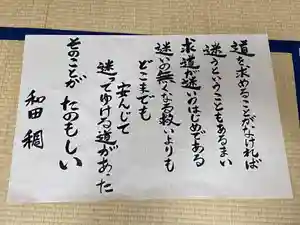 道を求めることがなければ
迷うということもあるまい
求道が迷いのはじめである
迷いの無くなる救いよりも
どこまでも
安んじて
迷ってゆける道があった
そのことが たのもしい
和田 稠